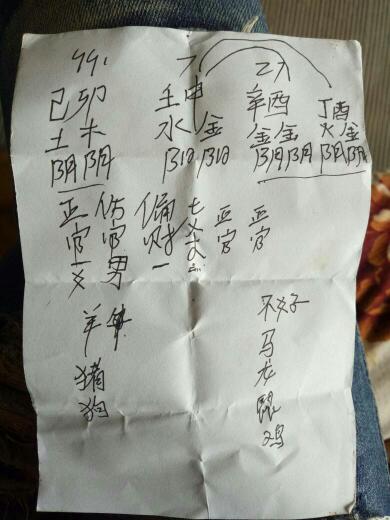 99, 7 27
己卯 壬申 辛酉 丁酉
土木 水金 金金 火金
阴阴 阳阳 阴阴 阴阴
正官 伤官 偏财 七杀 正官 正官
女 男
羊 不好
猪 马
狗 龙
鼠
鸡